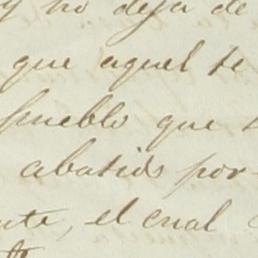 y no deja de
que aquel se
pueblo que
abatido por
nte, el cual